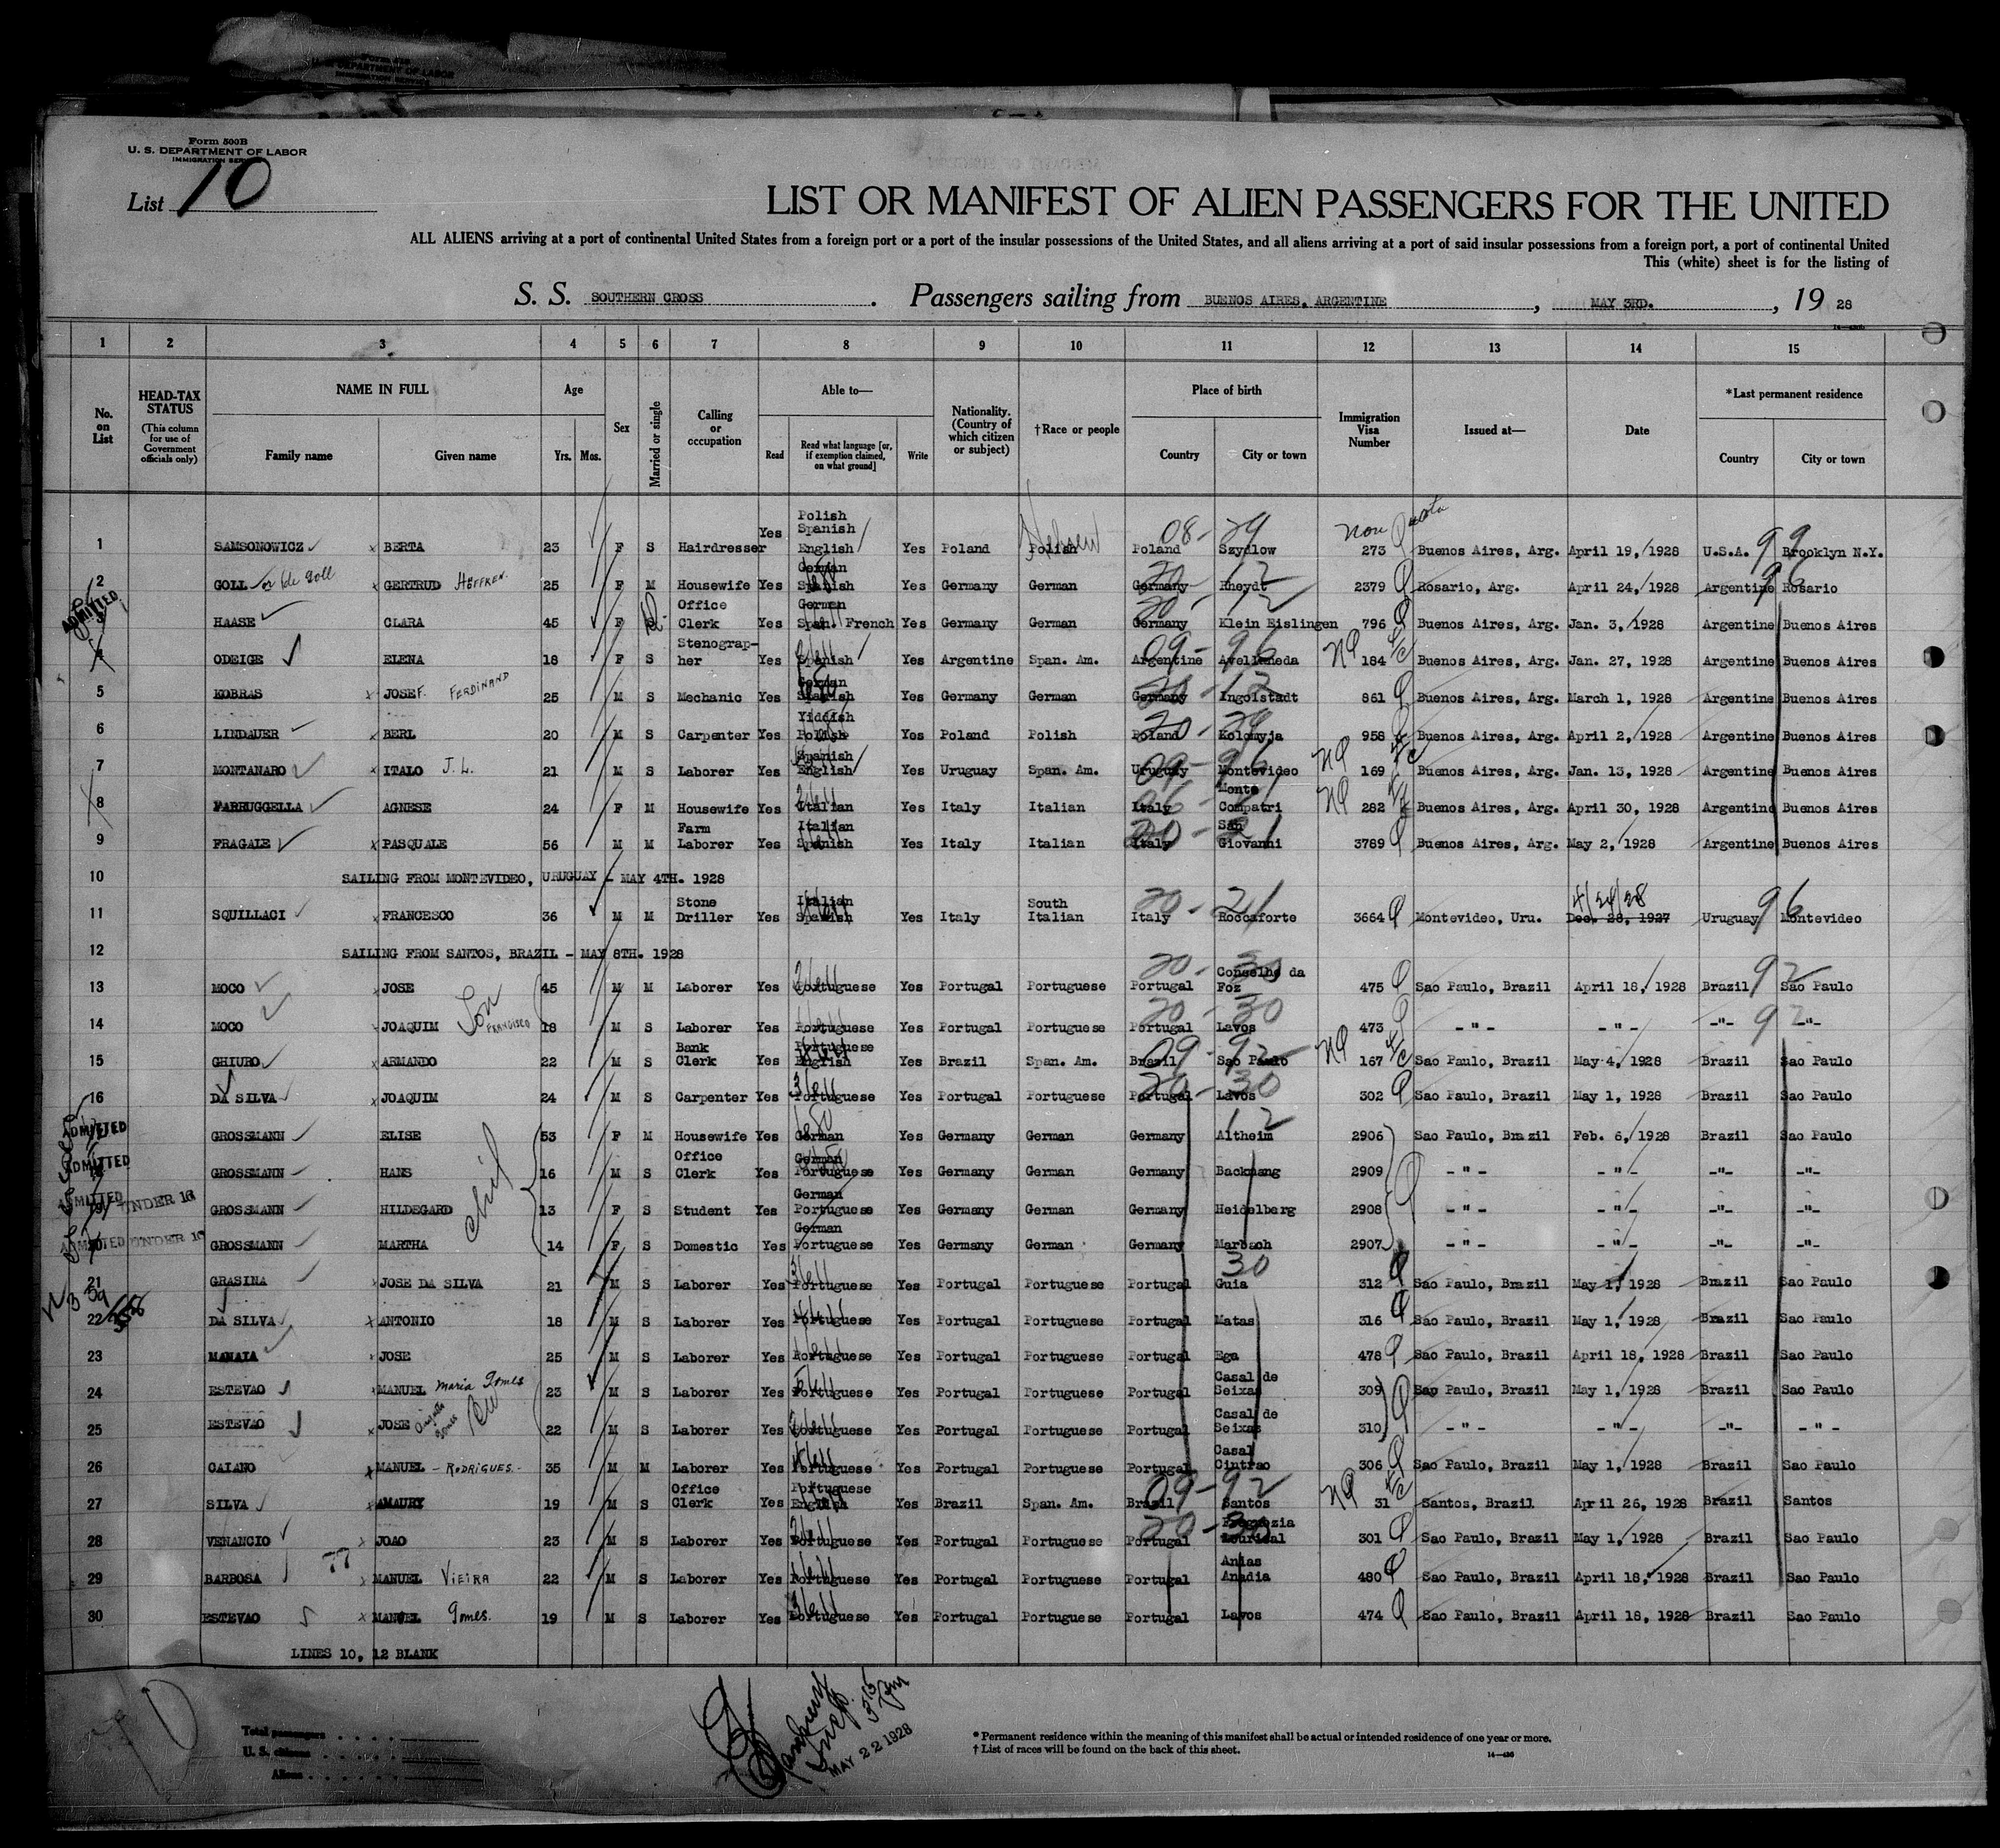 Form 500B
U. S. DEPARTMENT OF LABOR
IMMIGRATION SERVICE
List 10
LIST OR MANIFEST OF ALIEN PASSENGERS FOR THE UNITED
ALL ALIENS arriving at a port of continental United States from a foreign port or a port of the insular possessions of the United States, and all aliens arriving at a port of said insular possessions from a foreign port, a port of continental United
This (white) sheet is for the listing of
S. S. SOUTHERN CROSS . Passengers sailing from BUENOS AIRES, ARGENTINE , MAY 3RD. , 19 28
1 2 3 4 5 6 7 8 9 10 11 12 13 14 15
No. on List
HEAD-TAX STATUS (This column for use of Government officials only)
NAME IN FULL Family name Given name
Age Yrs. Mos.
Sex
Married or single
Calling or occupation
Able to— Read Read what language [or, if exemption claimed, on what ground] Write
Nationality. (Country of which citizen or subject)
†Race or people
Place of birth Country City or town
Immigration Visa Number
Issued at—
Date
*Last permanent residence Country City or town
1 SAMSONOWICZ BERTA 23 F S Hairdresser Yes Polish Spanish English Yes Poland Polish Hebrew Poland 08-29 Szydlow Non Quota 273 Buenos Aires, Arg. April 19, 1928 U.S.A. 99 Brooklyn N.Y.
2 GOLL or de Goll GERTRUD HÖFFREN 25 F M Housewife Yes German Spanish Yes Germany German Germany 20-12 Rheydt 2379 Rosario, Arg. April 24, 1928 Argentine 96 Rosario
ADMITTED 3 HAASE CLARA 45 F Office Clerk German Span. French Yes Germany German Germany Klein Eislingen 796 Buenos Aires, Arg. Jan. 3, 1928 Argentine Buenos Aires
4 ODEIGE ELENA 18 F S Stenographer Yes Spanish Yes Argentine Span. Am. Argentine 09-96 Avellaneda NQ 184 Buenos Aires, Arg. Jan. 27, 1928 Argentine Buenos Aires
5 KOBRAS JOSEF. FERDINAND 25 M S Mechanic Yes German Spanish Yes Germany German Germany 20-12 Ingolstadt 861 Buenos Aires, Arg. March 1, 1928 Argentine Buenos Aires
6 LINDAUER BERL 20 M S Carpenter Yes Yiddish Polish Yes Poland Polish Poland 20-29 Kolomyja 958 Buenos Aires, Arg. April 2, 1928 Argentine Buenos Aires
7 MONTANARO ITALO J. L. 21 M S Laborer Yes Spanish English Yes Uruguay Span. Am. Uruguay 09-96 Montevideo NQ 169 Buenos Aires, Arg. Jan. 13, 1928 Argentine Buenos Aires
8 FARRUGGELLA AGNESE 24 F M Housewife Yes Italian Yes Italy Italian Italy Monte Compatri NQ 282 Buenos Aires, Arg. April 30, 1928 Argentine Buenos Aires
9 FRAGALE PASQUALE 56 M M Farm Laborer Yes Italian Spanish Yes Italy Italian Italy 20-21 San Giovanni 3789 Buenos Aires, Arg. May 2, 1928 Argentine Buenos Aires
10 SAILING FROM MONTEVIDEO, URUGUAY - MAY 4TH. 1928
11 SQUILLACI FRANCESCO 36 M M Stone Driller Yes Italian Spanish Yes Italy South Italian Italy 20-21 Roccaforte 3664 Montevideo, Uru. 4/24/28 Dec. 28, 1927 Uruguay 96 Montevideo
12 SAILING FROM SANTOS, BRAZIL - MAY 8TH. 1928
13 MOCO JOSE 45 M M Laborer Yes Portuguese Yes Portugal Portuguese Portugal 20-30 Conselho da Foz 475 Sao Paulo, Brazil April 18, 1928 Brazil 92 Sao Paulo
14 MOCO JOAQUIM Son FRANCISCO 18 M S Laborer Yes Portuguese Yes Portugal Portuguese Portugal 20-30 Lavos 473 -"- -"- -"- 92 -"-
15 GHIURO ARMANDO 22 M S Bank Clerk Yes Portuguese English Yes Brazil Span. Am. Brazil 09-92 Sao Paulo NQ 167 Sao Paulo, Brazil May 4, 1928 Brazil Sao Paulo
16 DA SILVA JOAQUIM 24 M S Carpenter Yes Portuguese Yes Portugal Portuguese Portugal 20-30 Lavos 302 Sao Paulo, Brazil May 1, 1928 Brazil Sao Paulo
ADMITTED GROSSMANN ELISE 53 F M Housewife Yes German Yes Germany German Germany 12 Altheim 2906 Sao Paulo, Brazil Feb. 6, 1928 Brazil Sao Paulo
ADMITTED GROSSMANN HANS 16 M S Office Clerk Yes German Portuguese Yes Germany German Germany Backnang 2909 -"- -"- -"- -"-
ADMITTED UNDER 16 GROSSMANN HILDEGARD 13 F S Student Yes German Portuguese Yes Germany German Germany Heidelberg 2908 -"- -"- -"- -"-
ADMITTED UNDER 16 GROSSMANN MARTHA 14 F S Domestic Yes German Portuguese Yes Germany German Germany Marbach 2907 -"- -"- -"- -"-
21 GRASINA JOSE DA SILVA 21 M S Laborer Yes Portuguese Yes Portugal Portuguese Portugal 30 Guia 312 Sao Paulo, Brazil May 1, 1928 Brazil Sao Paulo
22 DA SILVA ANTONIO 18 M S Laborer Yes Portuguese Yes Portugal Portuguese Portugal Matas 316 Sao Paulo, Brazil May 1, 1928 Brazil Sao Paulo
23 MANAIA JOSE 25 M S Laborer Yes Portuguese Yes Portugal Portuguese Portugal Ega 478 Sao Paulo, Brazil April 18, 1928 Brazil Sao Paulo
24 ESTEVAO MANUEL Maria Gomes 23 M S Laborer Yes Portuguese Yes Portugal Portuguese Portugal Casal de Seixas 309 Sao Paulo, Brazil May 1, 1928 Brazil Sao Paulo
25 ESTEVAO JOSE 22 M S Laborer Yes Portuguese Yes Portugal Portuguese Portugal Casal de Seixas 310 -"- -"- -"- -"-
26 CAIANO MANUEL - RODRIGUES - 35 M M Laborer Yes Portuguese Yes Portugal Portuguese Portugal Casal Cintrao 306 Sao Paulo, Brazil May 1, 1928 Brazil Sao Paulo
27 SILVA AMAURY 19 M S Office Clerk Yes Portuguese English Yes Brazil Span. Am. Brazil 09-92 Santos NQ 31 Santos, Brazil April 26, 1928 Brazil Santos
28 VENANCIO JOAO 23 M S Laborer Yes Portuguese Yes Portugal Portuguese Portugal 20-30 Louriçal 301 Sao Paulo, Brazil May 1, 1928 Brazil Sao Paulo
29 BARBOSA 77 MANUEL VIEIRA 22 M S Laborer Yes Portuguese Yes Portugal Portuguese Portugal Anadia 480 Sao Paulo, Brazil April 18, 1928 Brazil Sao Paulo
30 ESTEVAO MANUEL Gomes. 19 M S Laborer Yes Portuguese Yes Portugal Portuguese Portugal Lavos 474 Sao Paulo, Brazil April 18, 1928 Brazil Sao Paulo
LINES 10, 12 BLANK
Total passengers
U. S. citizens
Aliens
MAY 22 1928
* Permanent residence within the meaning of this manifest shall be actual or intended residence of one year or more.
† List of races will be found on the back of this sheet.